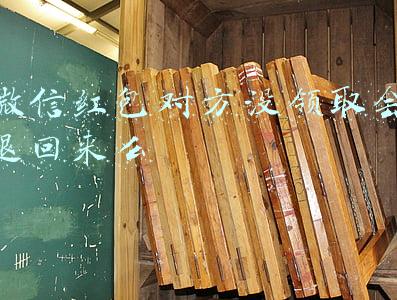 微信红包对方没领取会
退回来么